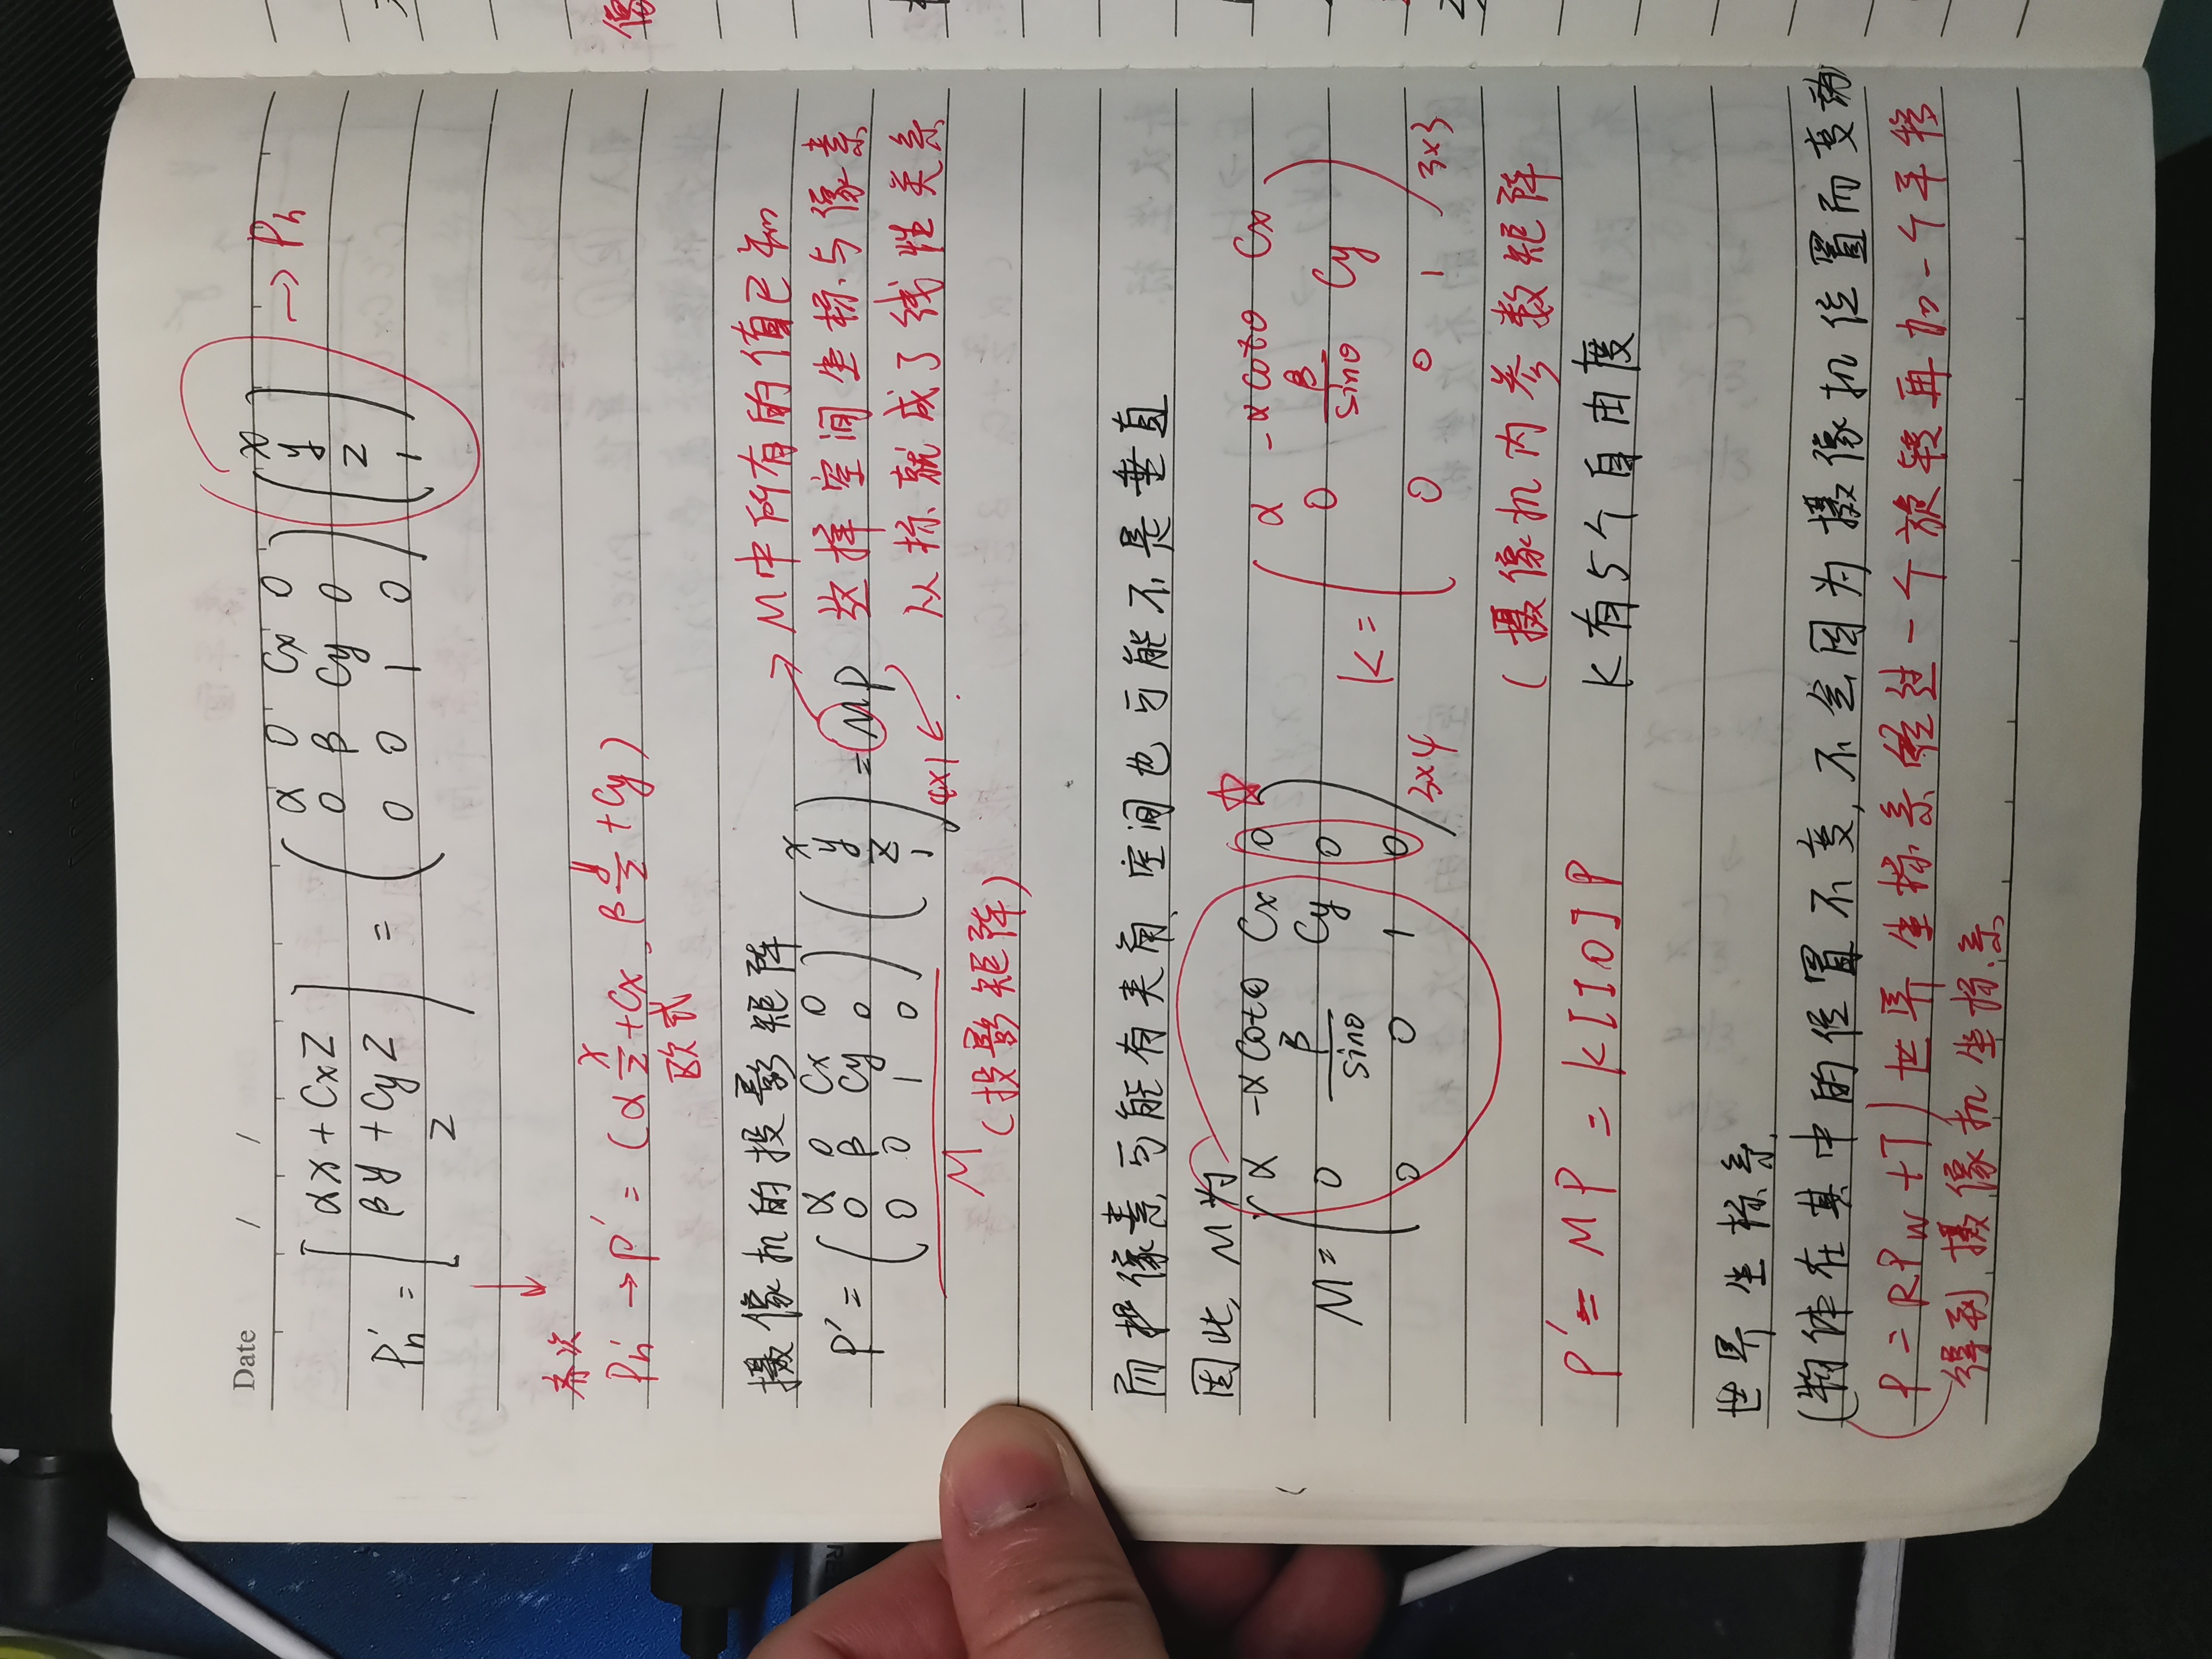 Date / /
Ph' = [ αx + CxZ
βy + CyZ
Z ] = ( α 0 Cx 0
0 β Cy 0
0 0 1 0 ) ( x
y
z
1 ) → Ph
↓
齐次
Ph' → P' = (α x/z + Cx, β y/z + Cy)
欧式
摄像机的投影矩阵
P' = ( α 0 Cx 0
0 β Cy 0
0 0 1 0 ) ( x
y
z
1 ) 4x1 = MP
M
(投影矩阵)
→ M中所有的值已知
这样空间坐标与像素
坐标就成了线性关系
而把像素可能有夹角, 空间也可能不是垂直
因此, M为
M = ( α -αcotθ Cx 0
0 β/sinθ Cy 0
0 0 1 0 ) 3x4 ☆
K = ( α -αcotθ Cx
0 β/sinθ Cy
0 0 1 ) 3x3
(摄像机内参数矩阵
P' = MP = K[I 0]P
K有5个自由度
世界坐标系
(物体在其中的位置不变, 不会因为摄像机位置而变动
P = RPw + T) 世界坐标系经过一个旋转再加一个平移
得到摄像机坐标系